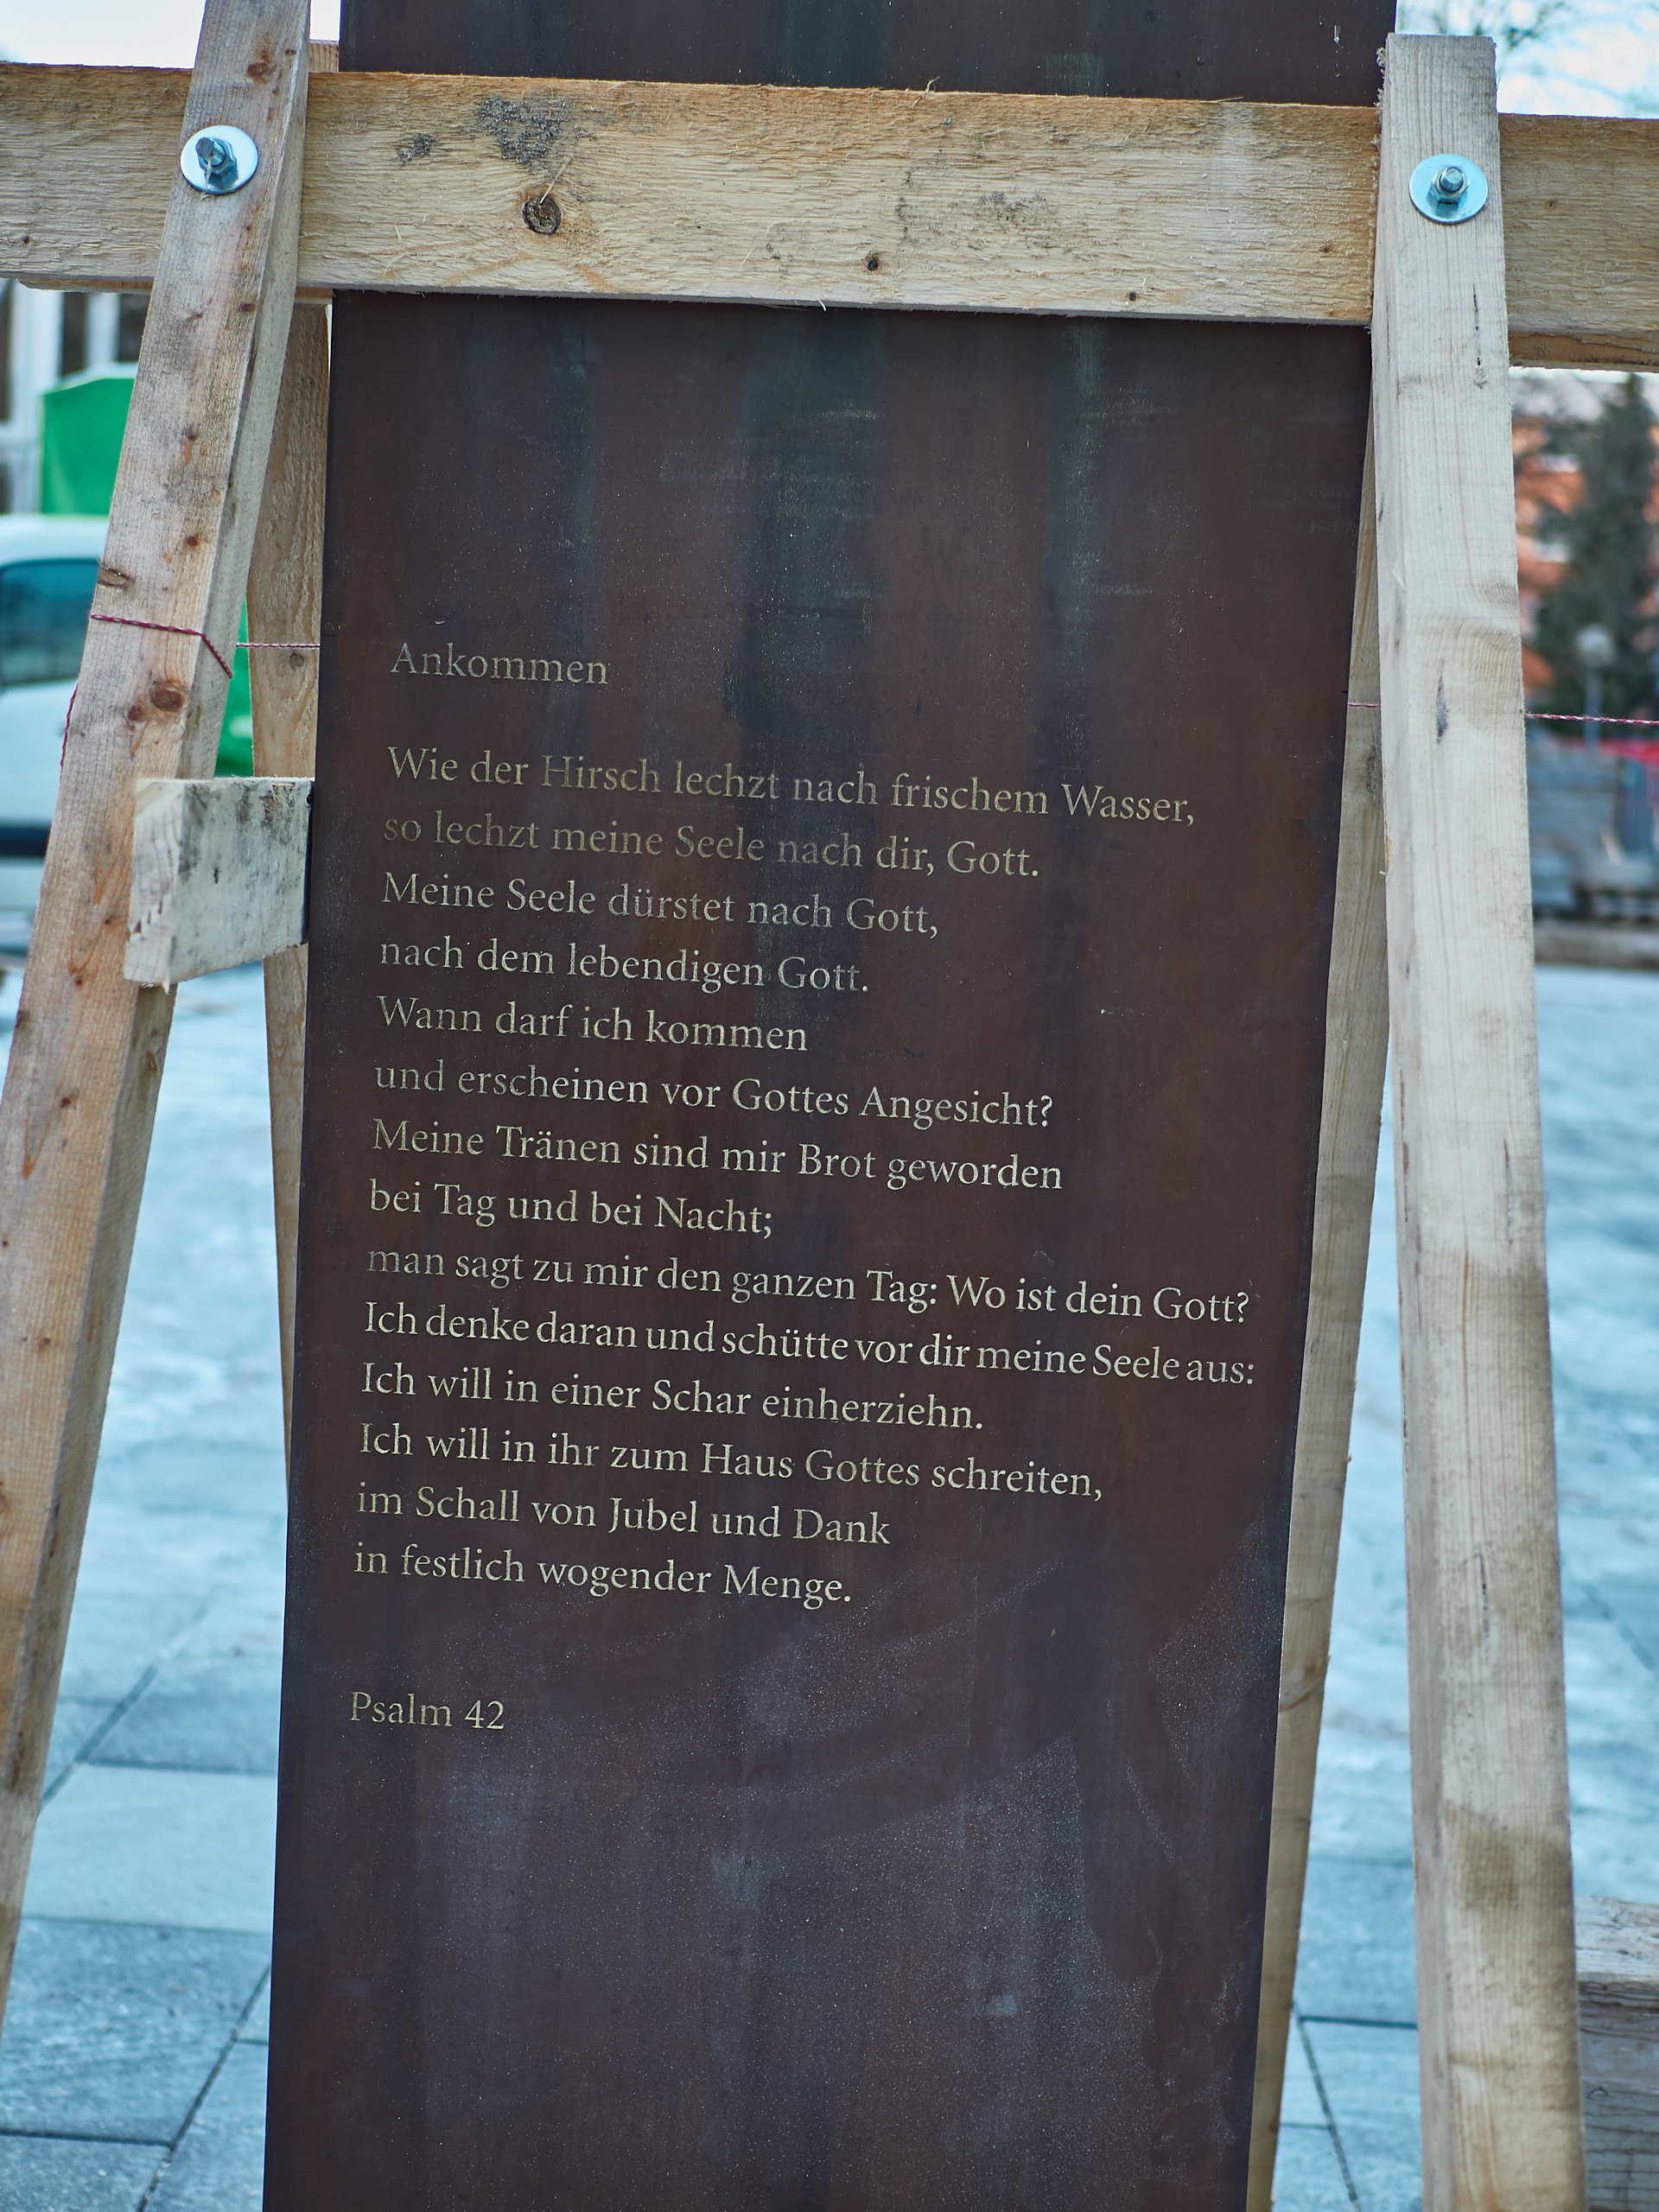 Ankommen
Wie der Hirsch lechzt nach frischem Wasser,
so lechzt meine Seele nach dir, Gott.
Meine Seele dürstet nach Gott,
nach dem lebendigen Gott.
Wann darf ich kommen
und erscheinen vor Gottes Angesicht?
Meine Tränen sind mir Brot geworden
bei Tag und bei Nacht;
man sagt zu mir den ganzen Tag: Wo ist dein Gott?
Ich denke daran und schütte vor dir meine Seele aus:
Ich will in einer Schar einherziehn.
Ich will in ihr zum Haus Gottes schreiten,
im Schall von Jubel und Dank
in festlich wogender Menge.
Psalm 42